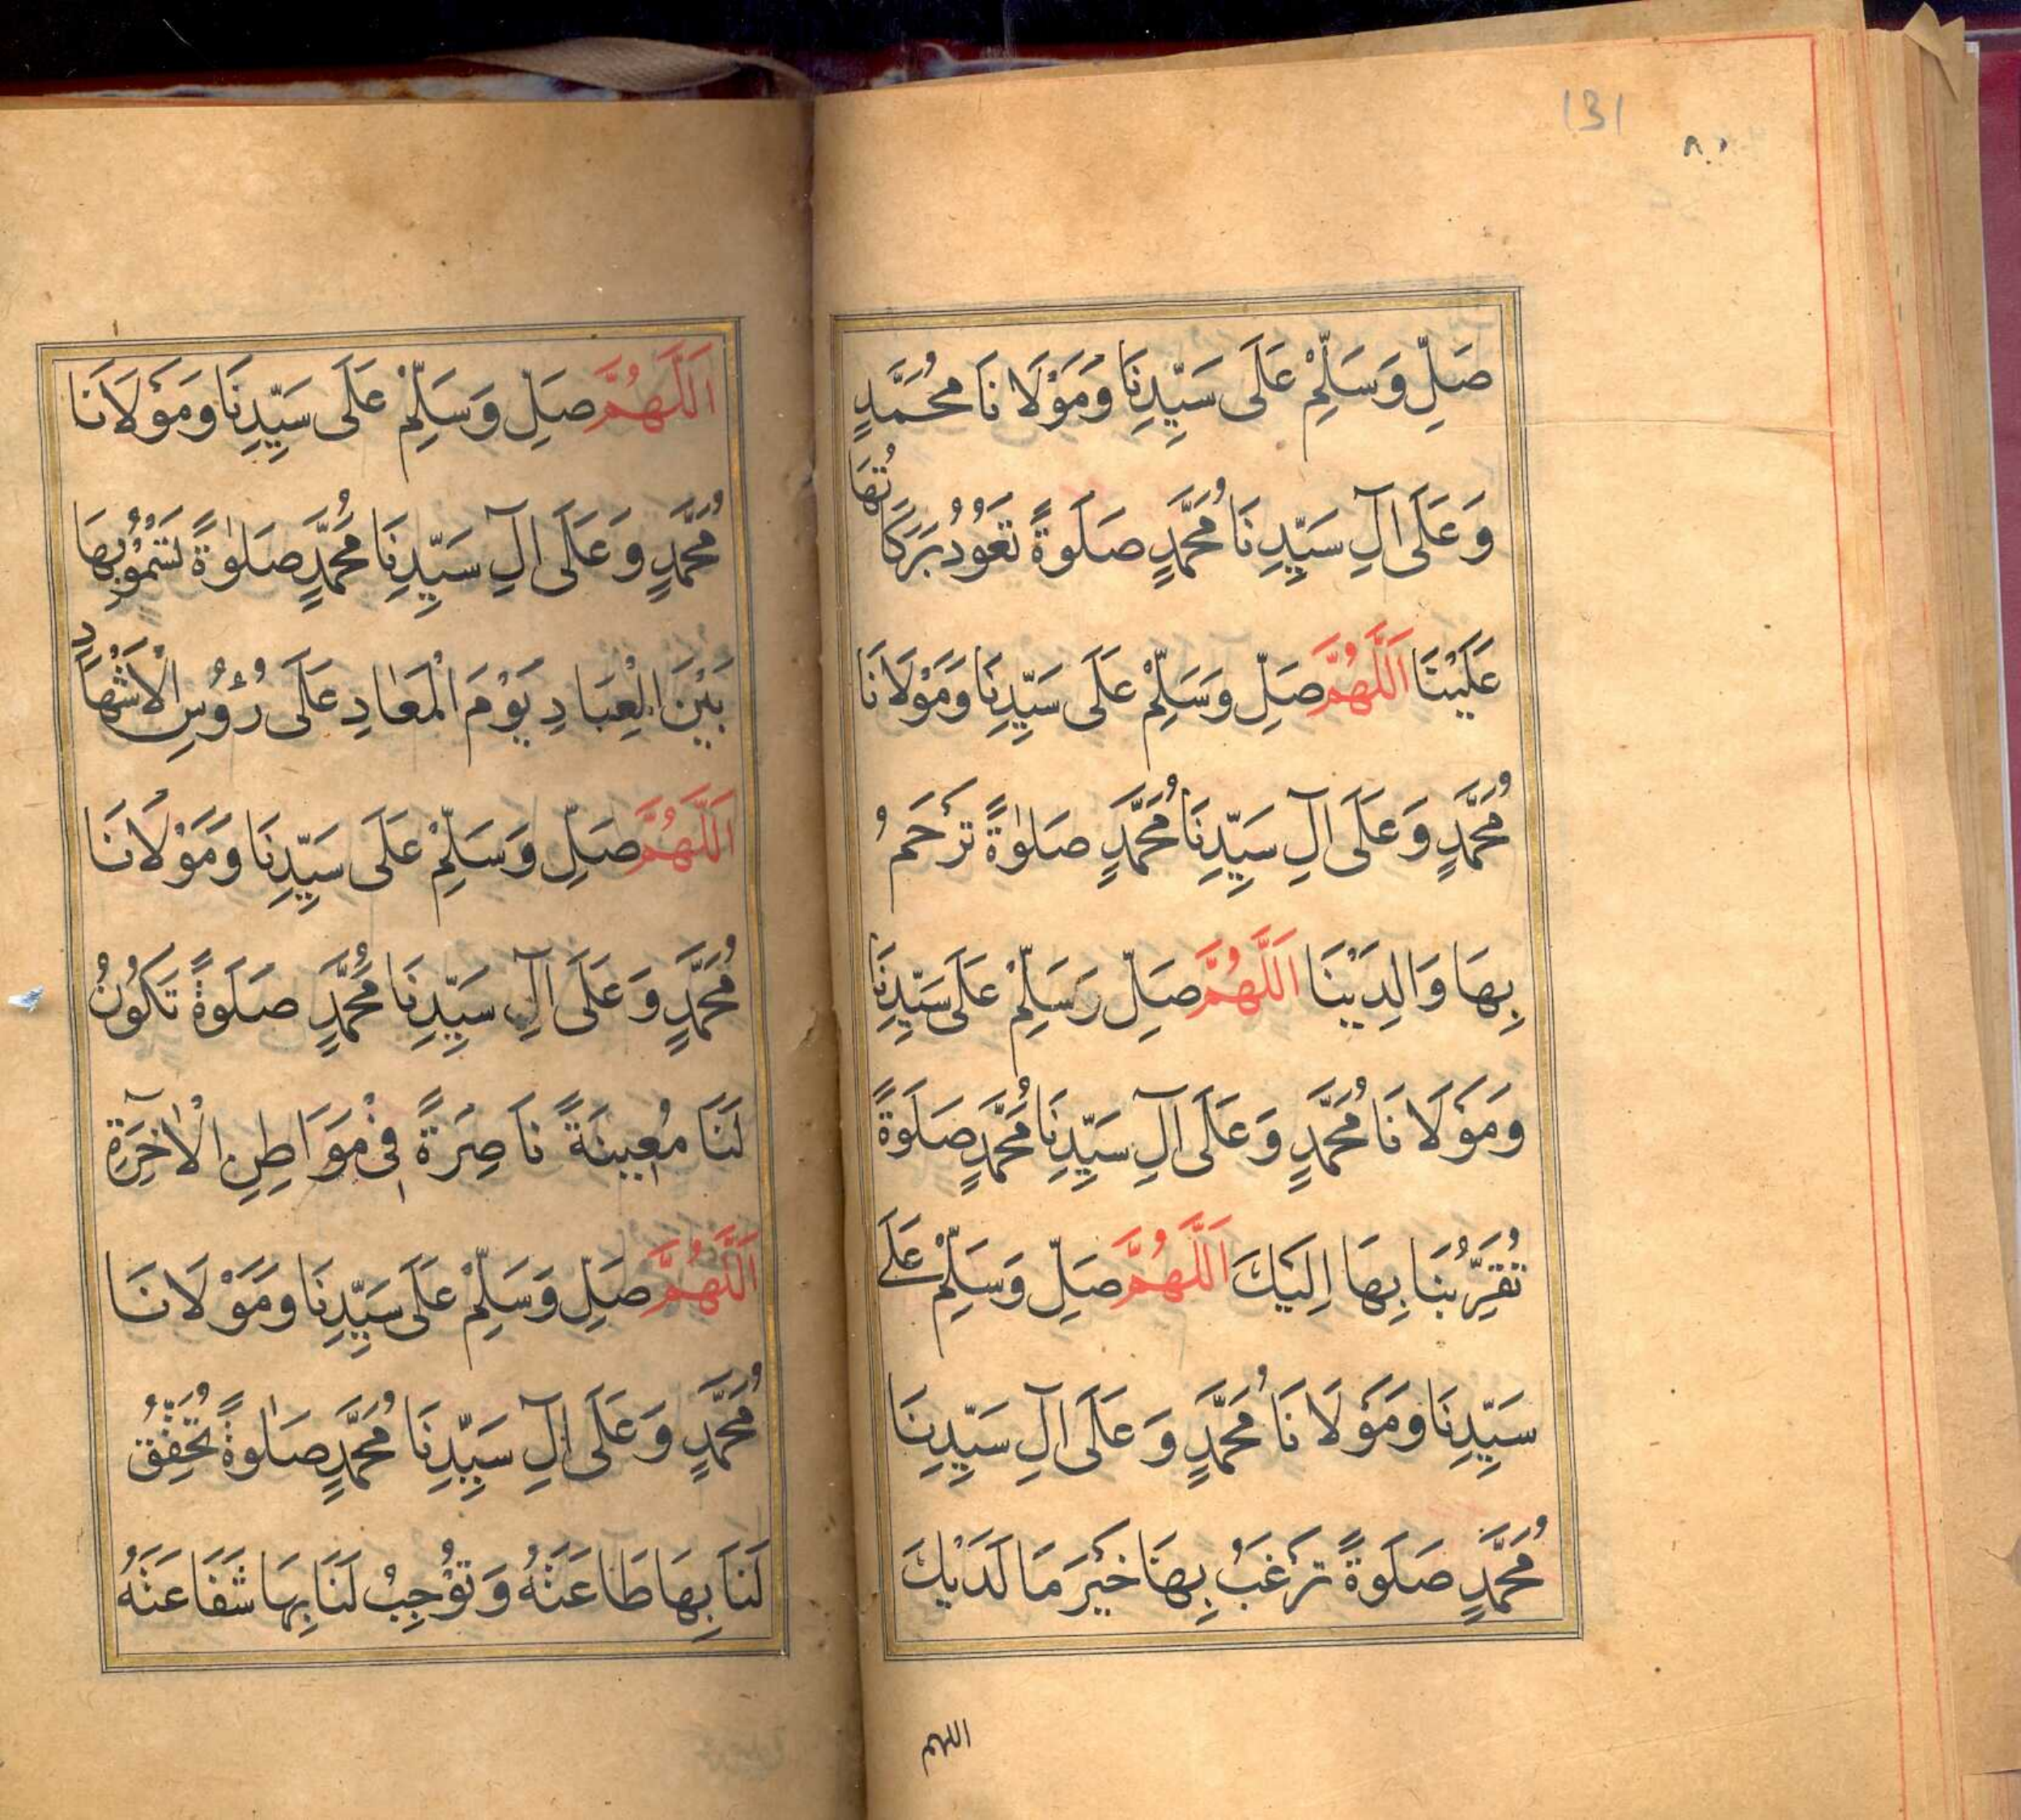 131
صَلِّ وَسَلِّمْ عَلَى سَيِّدِنَا وَمَوْلَانَا مُحَمَّدٍ
وَعَلَى آلِ سَيِّدِنَا مُحَمَّدٍ صَلَوةً تَعُوْدُ بَرَكَاتُهَا
عَلَيْنَا اَللّٰهُمَّ صَلِّ وَسَلِّمْ عَلَى سَيِّدِنَا وَمَوْلَانَا
مُحَمَّدٍ وَعَلَى آلِ سَيِّدِنَا مُحَمَّدٍ صَلٰوةً تَرْحَمُ
بِهَا وَالِدَيْنَا اَللّٰهُمَّ صَلِّ وَسَلِّمْ عَلَى سَيِّدِنَا
وَمَوْلَانَا مُحَمَّدٍ وَعَلَى آلِ سَيِّدِنَا مُحَمَّدٍ صَلَوةً
تُقَرِّبُنَا بِهَا اِلَيْكَ اَللّٰهُمَّ صَلِّ وَسَلِّمْ عَلَى
سَيِّدِنَا وَمَوْلَانَا مُحَمَّدٍ وَعَلَى آلِ سَيِّدِنَا
مُحَمَّدٍ صَلَوةً تَرْغَبُ بِهَا خَيْرَ مَا لَدَيْكَ
اللهم
اَللّٰهُمَّ صَلِّ وَسَلِّمْ عَلَى سَيِّدِنَا وَمَوْلَانَا
مُحَمَّدٍ وَعَلَى آلِ سَيِّدِنَا مُحَمَّدٍ صَلٰوةً نَسْمُوْ بِهَا
بَيْنَ الْعِبَادِ يَوْمَ الْمَعَادِ عَلَى رُؤُسِ الْاَشْهَادِ
اَللّٰهُمَّ صَلِّ وَسَلِّمْ عَلَى سَيِّدِنَا وَمَوْلَانَا
مُحَمَّدٍ وَعَلَى آلِ سَيِّدِنَا مُحَمَّدٍ صَلَوةً تَكُوْنُ
لَنَا مُعِيْنَةً نَاصِرَةً فِىْ مَوَاطِنِ الْاٰخِرَةِ
اَللّٰهُمَّ صَلِّ وَسَلِّمْ عَلَى سَيِّدِنَا وَمَوْلَانَا
مُحَمَّدٍ وَعَلَى آلِ سَيِّدِنَا مُحَمَّدٍ صَلٰوةً تُحَقِّقُ
لَنَا بِهَا طَاعَتَهُ وَتُوْجِبُ لَنَا بِهَا شَفَاعَتَهُ